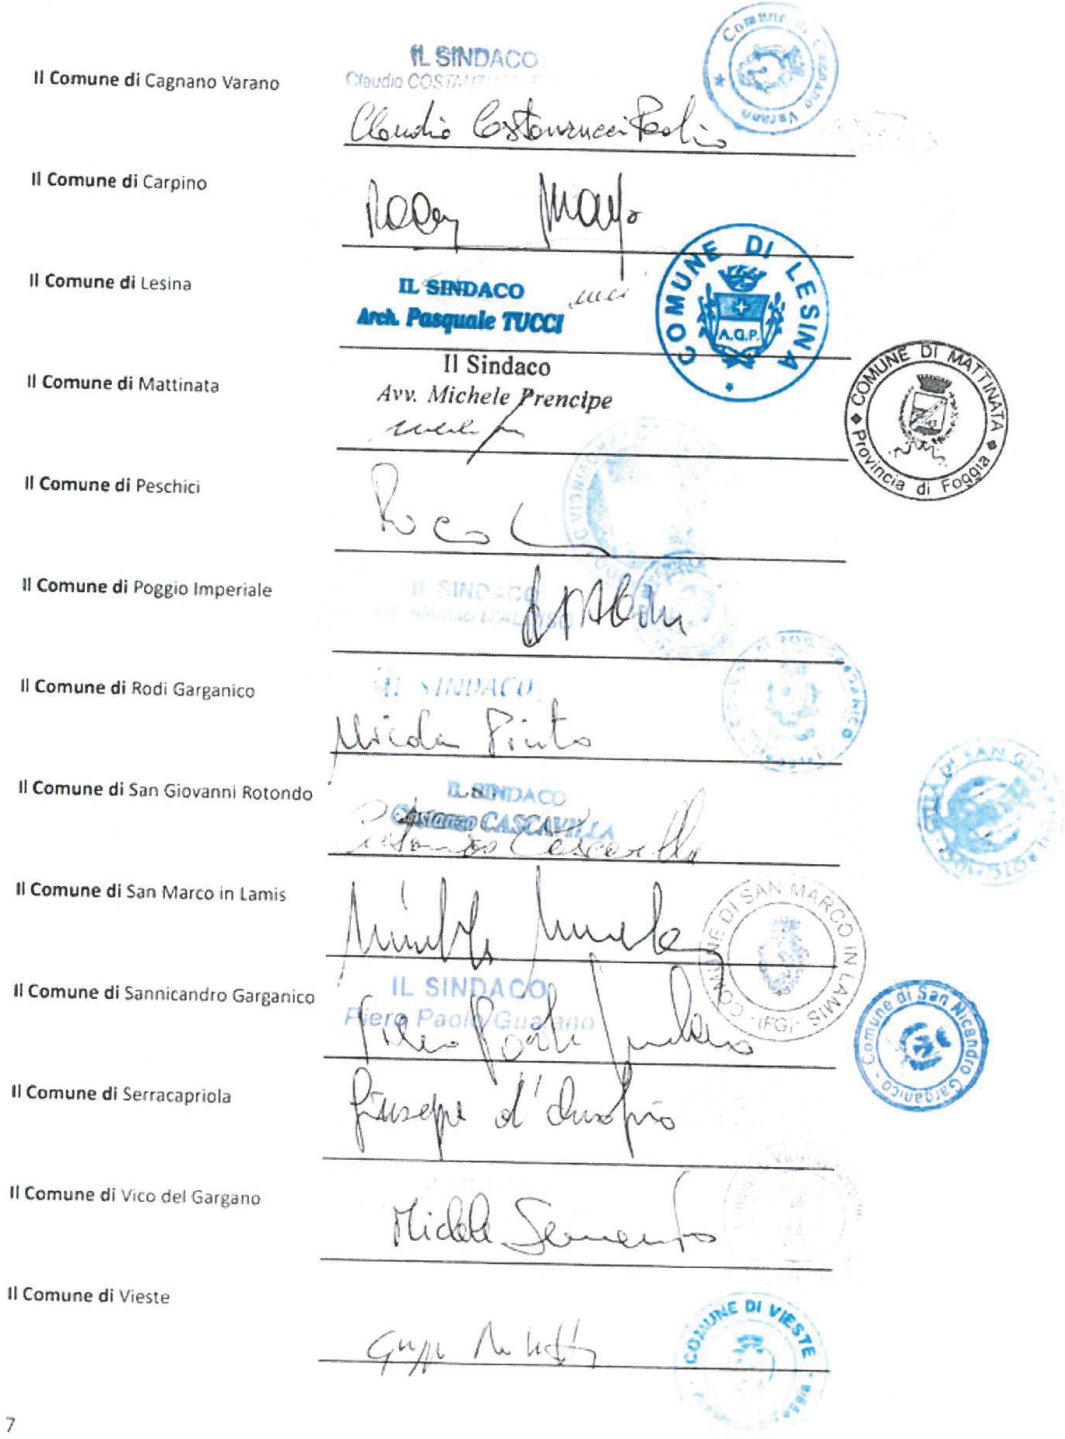 IL SINDACO
Claudio
Comune di Cagnano Varano
Il Comune di Cagnano Varano
Claudio Costanzucci Paolino
Il Comune di Carpino
Rocco
COMUNE DI LESINA
A.G.P.
Il Comune di Lesina
IL SINDACO
Arch. Pasquale TUCCI
Il Sindaco
Avv. Michele Prencipe
Il Comune di Mattinata
COMUNE DI MATTINATA
Provincia di Foggia
Il Comune di Peschici
PROVINCIA
Il Comune di Poggio Imperiale
IL SINDACO
Il Comune di Rodi Garganico
IL SINDACO
Nicola Pinto
Il Comune di San Giovanni Rotondo
IL SINDACO
Costanzo CASCAVILLA
Costanzo Cascavilla
DI SAN GIOVANNI ROTONDO
Il Comune di San Marco in Lamis
COMUNE DI SAN MARCO IN LAMIS
(FG)
Il Comune di Sannicandro Garganico
IL SINDACO
Piero Paolo Gualano
Piero Paolo Gualano
Comune di San Nicandro Garganico
Il Comune di Serracapriola
Giuseppe d'Onofrio
Il Comune di Vico del Gargano
Michele Sementino
Il Comune di Vieste
COMUNE DI VIESTE
7